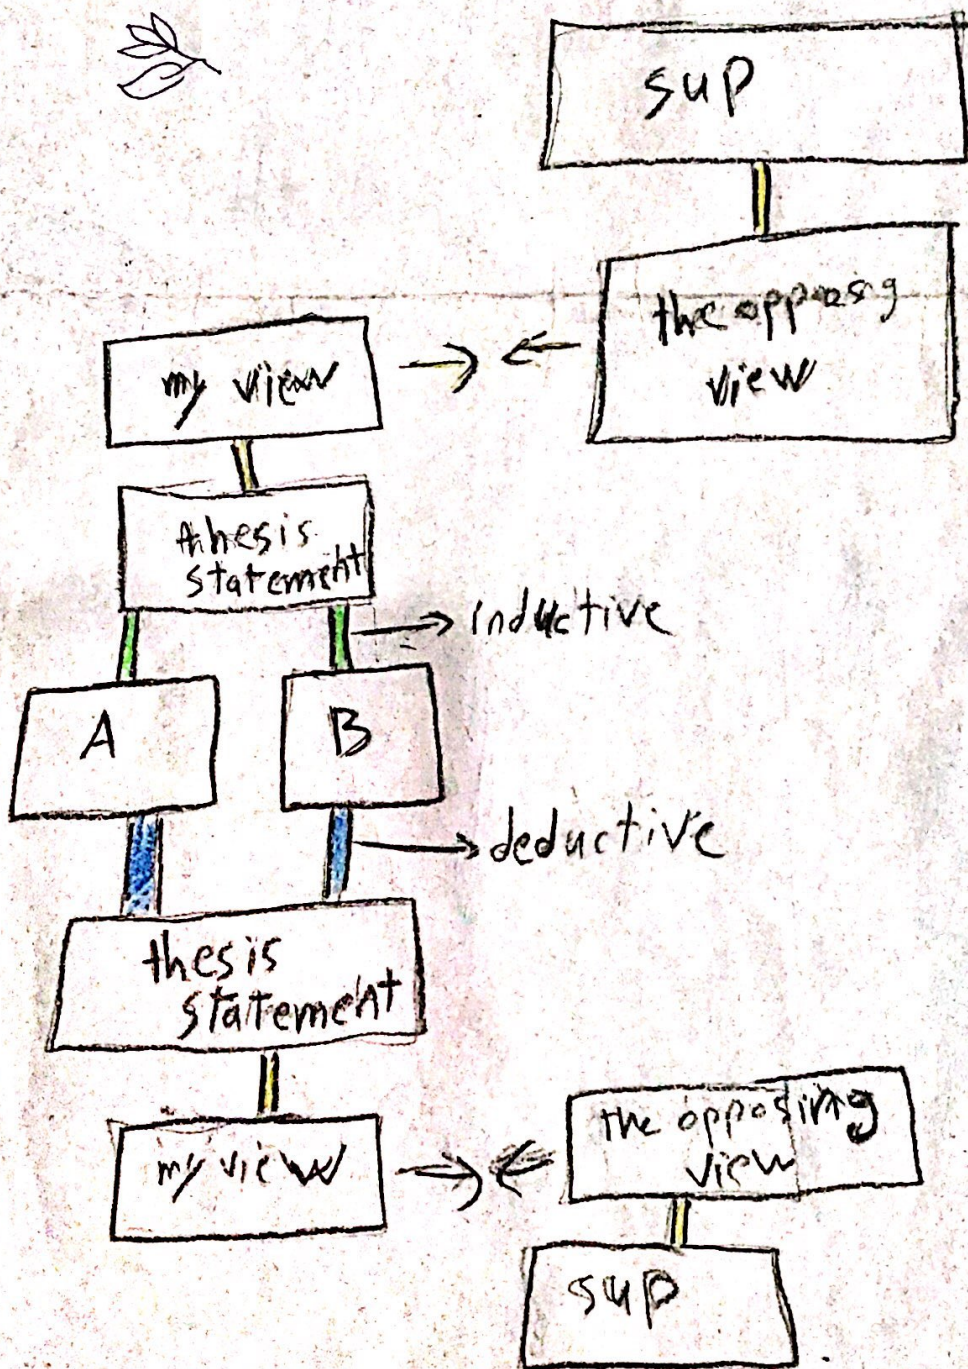 sup
the opposg
view
my view
thesis
statement
inductive
A
B
deductive
thesis
statement
my view
the opposing
view
sup